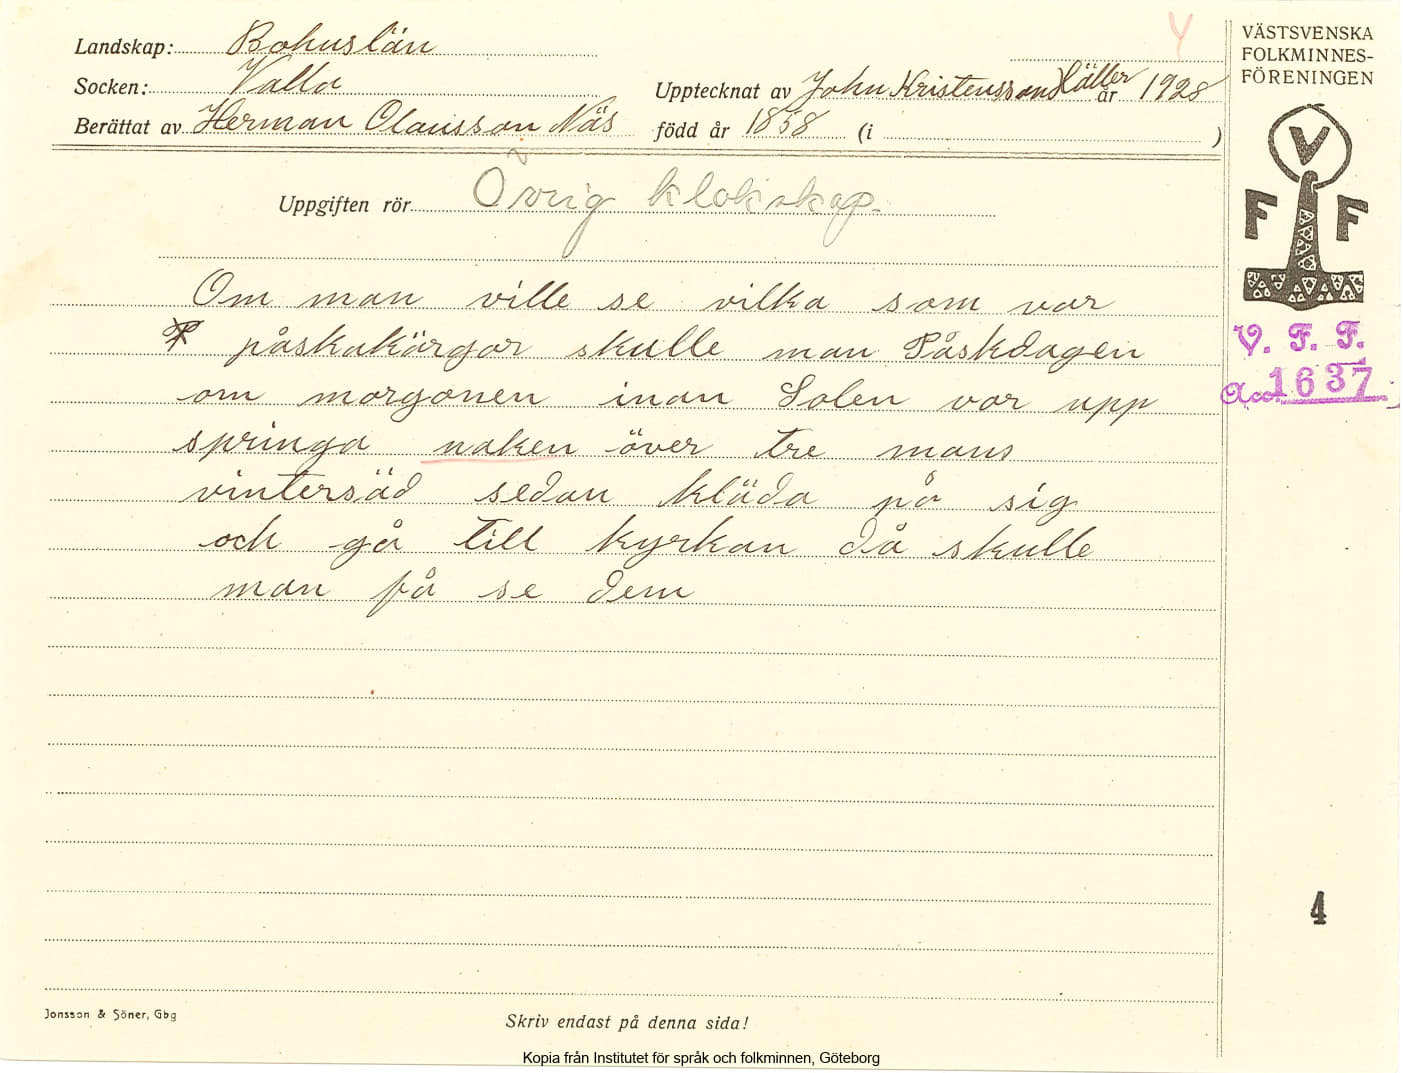 Landskap: Bohuslän
Socken: Valla
Upptecknat av John Kristensson Häller år 1928
Berättat av Herman Olausson Näs född år 1858 (i )
Uppgiften rör Övrig klokskap.
Om man ville se vilka som var
påskakärgar skulle man Påskdagen
om morgonen inan Solen var upp
springa naken över tre mans
vintersäd sedan kläda på sig
och gå till kyrkan då skulle
man få se dem
Jonsson & Söner, Gbg
Skriv endast på denna sida!
Kopia från Institutet för språk och folkminnen, Göteborg
VÄSTSVENSKA
FOLKMINNES-
FÖRENINGEN
V
F F
V. F. F.
Acc. 1637
4